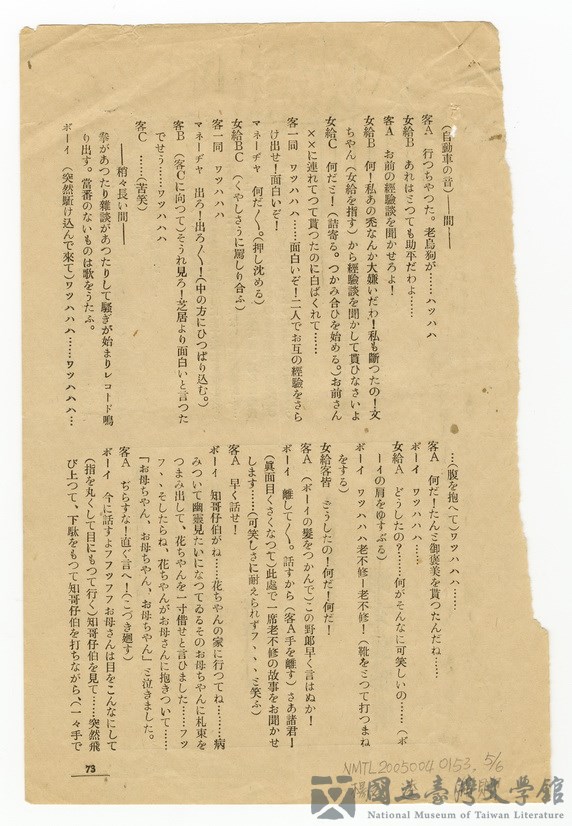 (自動車の音)――間――
客A 行つちやつた。老烏狗が……ハツハハ
女給B あれはとつても助平だわよ……
客A お前の經驗談を聞かせろよ!
女給B 何!私あの禿なんか大嫌いだわ!私も斷つたの!文
ちやん(女給を指す)から經驗談を聞かして貰ひなさいよ
女給C 何だと!(詰寄る。つかみ合ひを始める。)お前さん
××に連れてつて貰つたのに白ばくれて……
客一同 ワツハハハ……面白いぞ!二人でお互の經驗をさら
け出せ!面白いぞ!
マネーヂヤ 何だ〱。(押し沈める)
女給BC (くやしさうに罵り合ふ)
客一同 ワツハハハ
マネーヂヤ 出ろ!出ろ〱!(中の方にひつぱり込む。)
客B (客Cに向つて)そうれ見ろ!芝居より面白いと言つた
でせう……ワツハハハ
客C ……(苦笑)
――稍々長い間――
拳があつたり雜談があつたりして騷ぎが始まりレコード鳴
り出す。當番のないものは歌をうたふ。
ボーイ (突然駈け込んで來て)ワツハハハ……ワツハハハ…
…(腹を抱へて)ワツハハハ……
客A 何だ!たんと御褒美を貰つたんだね……
ボーイ ワツハハハ……
女給A どうしたの?……何がそんなに可笑しいの……(ボ
ーイの肩をゆすぶる)
ボーイ ワツハハハ老不修!老不修!(靴をとつて打つまね
をする)
女給客皆 どうしたの!何だ!何だ!
客A (ボーイの髮をつかんで)この野郎早く言はぬか!
ボーイ 離して〱。話すから(客A手を離す)さあ諸君!
(眞面目くさくなつて)此處で一席老不修の故事をお聞かせ
します……(可笑しさに耐えられずフ、、、と笑ふ)
客A 早く話せ!
ボーイ 知哥仔伯がね……花ちやんの家に行つてね………病
みついて幽靈見たいになつてゐるそのお母ちやんに札束を
つまみ出して、花ちやんを一寸借せと言ひました……フツ
フ、、そしたらね、花ちやんがお母さんに抱きついて……
「お母ちやん、お母ちやん、お母ちやん」と泣きました。
客A ぢらすな!直ぐ言へ!(こづき廻す)
ボーイ 今に話すよフフツフフお母さんは目をこんなにして
(指を丸くして目にもつて行く)知哥仔伯を見て……突然飛
び上つて、下駄をもつて知哥仔伯を打ちながら、(一々手で
73
NMTL20050040153. 5/6
國立臺灣文學館
National Museum of Taiwan Literature